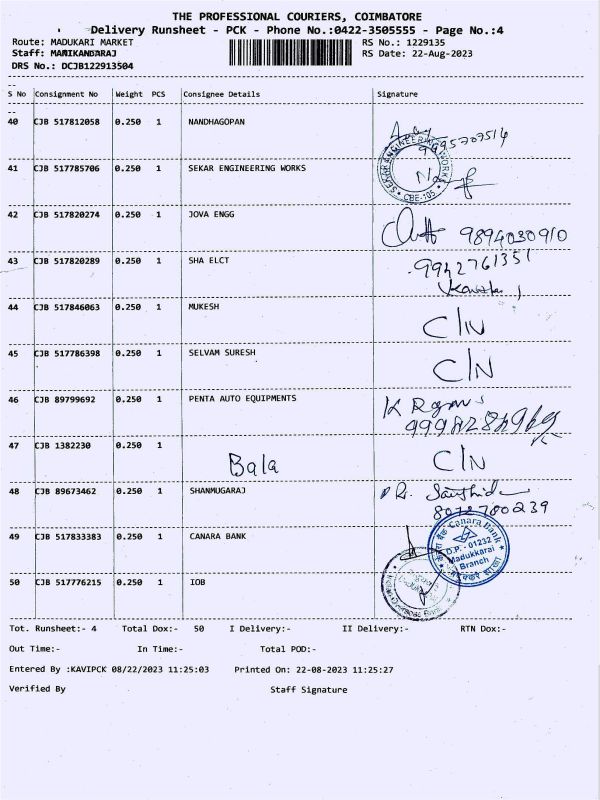 THE PROFESSIONAL COURIERS, COIMBATORE
Delivery Runsheet - PCK - Phone No.:0422-3505555 - Page No.:4
Route: MADUKARI MARKET RS No.: 1229135
Staff: MANIKANDARAJ RS Date: 22-Aug-2023
DRS No.: DCJB122913504
S No Consignment No Weight PCS Consignee Details Signature
40 CJB 517812058 0.250 1 NANDHAGOPAN
41 CJB 517785706 0.250 1 SEKAR ENGINEERING WORKS
SEKAR ENGINEERING WORKS
CBE-105
42 CJB 517820274 0.250 1 JOVA ENGG 9894030910
43 CJB 517820289 0.250 1 SHA ELCT 9942761351
44 CJB 517846063 0.250 1 MUKESH C/N
45 CJB 517786398 0.250 1 SELVAM SURESH C/N
46 CJB 89799692 0.250 1 PENTA AUTO EQUIPMENTS
47 CJB 1382230 0.250 1 Bala C/N
48 CJB 89673462 0.250 1 SHANMUGARAJ
49 CJB 517833383 0.250 1 CANARA BANK
Canara Bank
D.P. - 01232
Madukkarai
Branch
50 CJB 517776215 0.250 1 IOB
Tot. Runsheet:- 4 Total Dox:- 50 I Delivery:- II Delivery:- RTN Dox:-
Out Time:- In Time:- Total POD:-
Entered By :KAVIPCK 08/22/2023 11:25:03 Printed On: 22-08-2023 11:25:27
Verified By Staff Signature